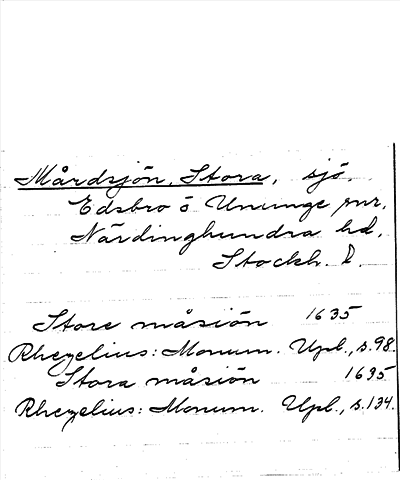 Mårdsjön, Stora, sjö,
Edsbro o Ununge snr,
Närdinghundra hd,
Stockh. l.
Store måsiön 1635
Rhezelius: Monum. Upl., s.98.
Stora måsiön 1635
Rhezelius: Monum. Upl., s.134.